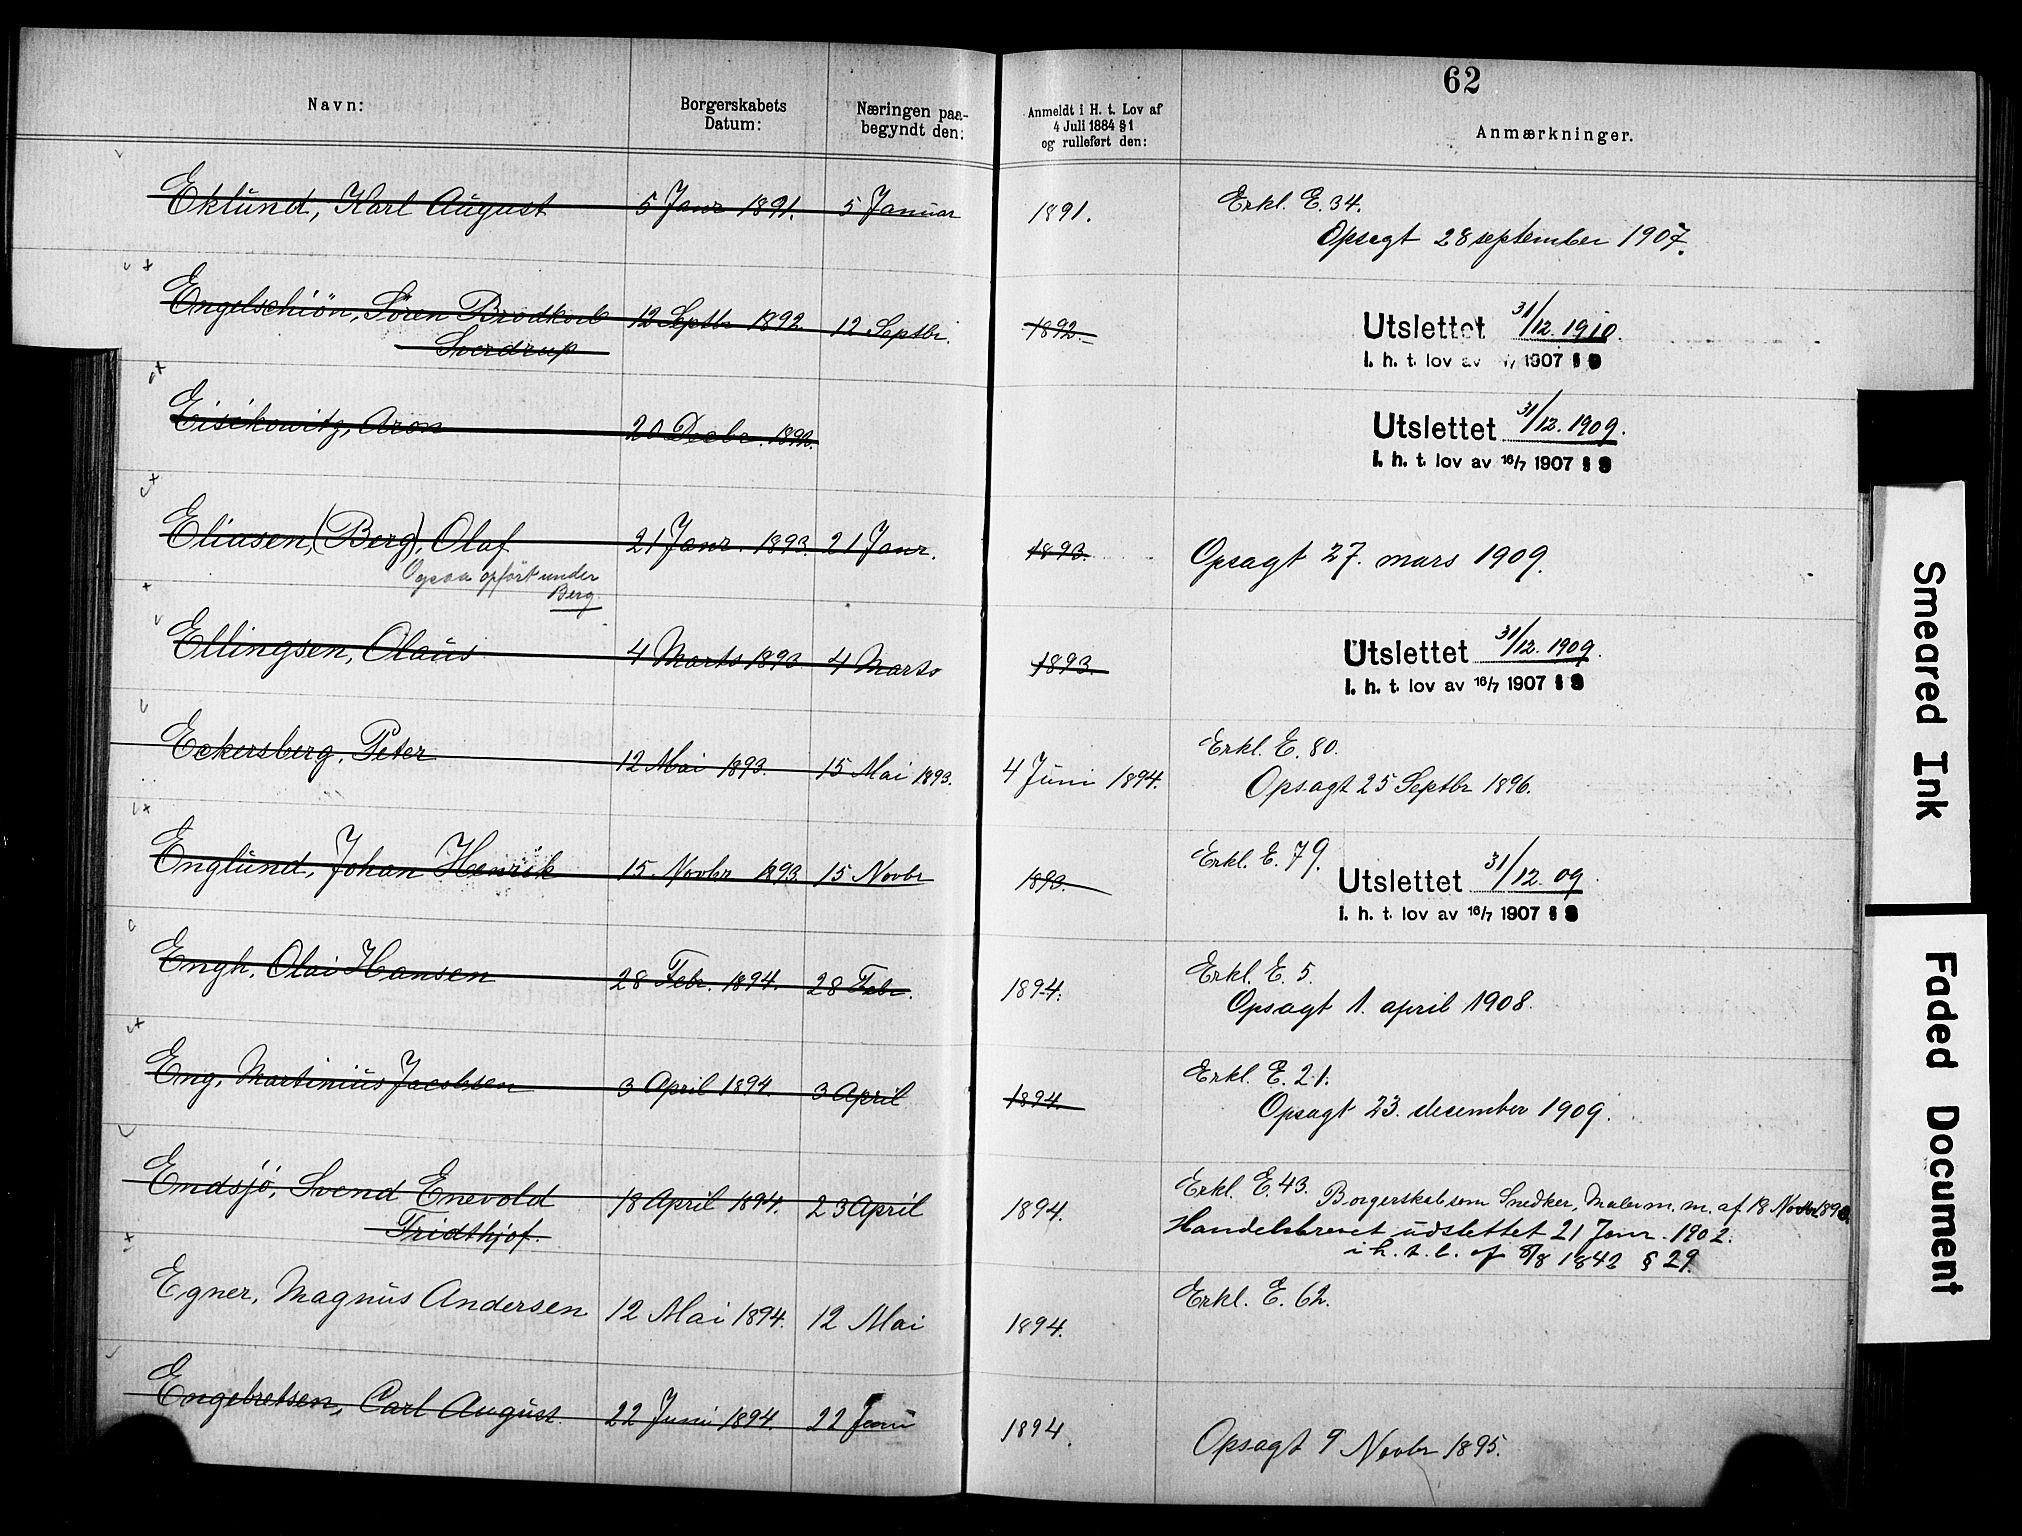 62
Navn:
Borgerskabets Datum:
Næringen paa-begyndt den:
Anmeldt i H. t. Lov af 4 Juli 1884 §1 og rulleført den:
Anmærkninger.
Eklund, Karl August 5 Janr 1891. 5 Januar 1891. Erkl. E. 34.
Opsagt 28 september 1907.
Engelschiön, Sören Brodkorb 12 Septbr 1892. 12 Septbr. 1892. Utslettet 31/12. 1910.
Sverdrup I. h. t. lov av /7 1907 §
Eisikowitz, Aron 20 Decbr. 1892. Utslettet 31/12. 1909.
I. h. t. lov av 16/7 1907 §
Eliasen, (Berg), Olaf 21 Janr. 1893. 21 Janr. 1893. Opsagt 27. mars 1909.
Ogsaa opført under
Berg.
Ellingsen, Olaus 4 Marts 1893 4 Marts 1893. Utslettet 31/12. 1909.
I. h. t. lov av 16/7 1907 §
Eckersberg, Peter 12 Mai 1893. 15 Mai 1893. 4 Juni 1894. Erkl. E. 80.
Opsagt 25 Septbr 1896.
Englund, Johan Henrik 15. Novbr 1893. 15 Novbr 1893. Erkl. E. 79.
Utslettet 31/12. 09.
I. h. t. lov av 16/7 1907 §
Engh, Olai Hansen 28 Febr. 1894. 28 Febr. 1894. Erkl. E. 5.
Opsagt 1. april 1908.
Eng, Martinius Jacobsen 3 April 1894. 3 April 1894. Erkl. E. 21.
Opsagt 23. december 1909.
Endsjö, Svend Enevold 18 April 1894. 23 April 1894. Erkl. E. 43. Borgerskab som Snedker, Maler m. m. af 18 Novbr
Fridthjof. Handelsbrevet udslettet 21 Janr. 1902.
i h. t. l. af 8/8 1842 § 29.
Egner, Magnus Andersen 12 Mai 1894. 12 Mai 1894. Erkl. E. 62.
Engebretsen, Carl August. 22 Juni 1894. 22 Juni 1894. Opsagt 9 Novbr 1895.
Smeared Ink
Faded Document